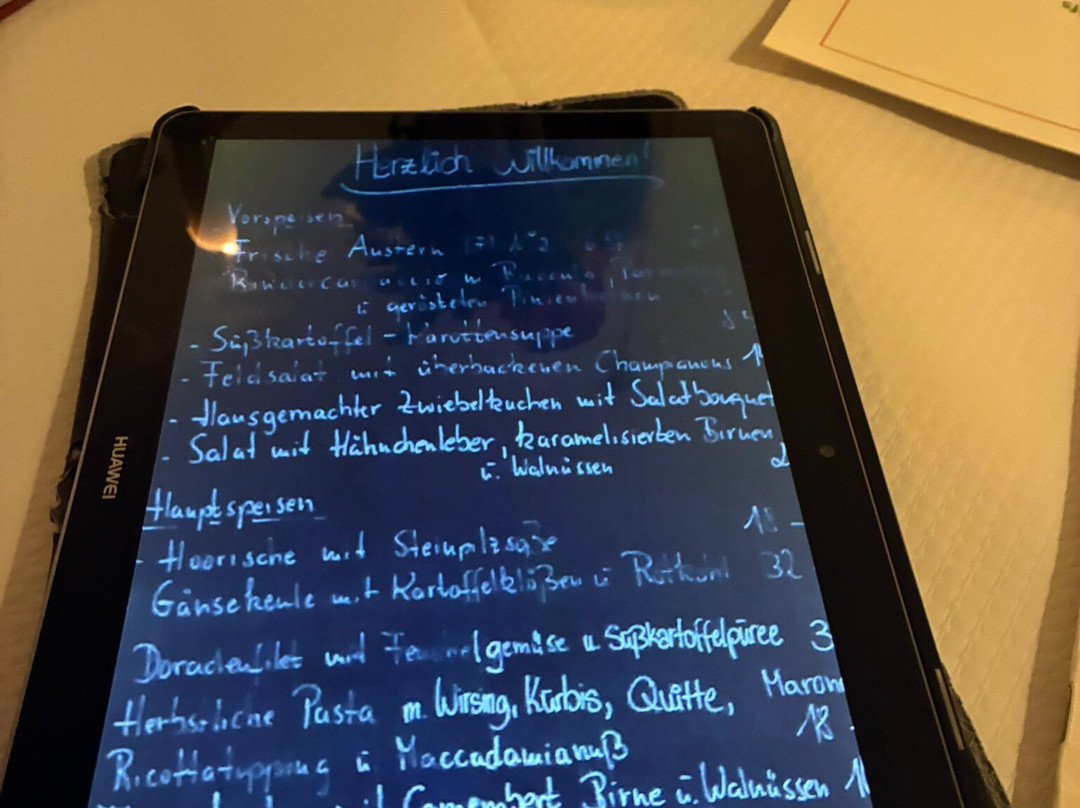 Herzlich Willkommen!
Vorspeisen
Frische Austern
u geröstelen Pinienkernen
- Süßkartoffel - Karottensuppe
- Feldsalat mit überbackenen Champanons
- Hausgemachter Zwiebelkuchen mit Salatbouquet
- Salat mit Hähnchenleber, karamelisierten Birnen
u. Walnüssen
Hauptspeisen
18 -
- Hoorische mit Steinpilzsoße
Gänsekeule mit Kartoffelklößen u Rotkohl 32
Doradenfilet und Fenchelgemüse u Süßkartoffelpüree 3
Herbstliche Pasta m. Wirsing, Kürbis, Quitte, Marone
18 -
Ricottatopping u Maccadamianuß
Camembert Birne u. Walnüssen
HUAWEI